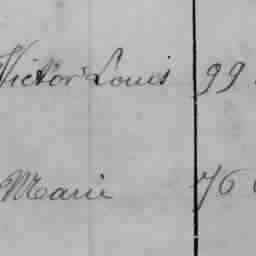 Victor Louis 99
Marie 76